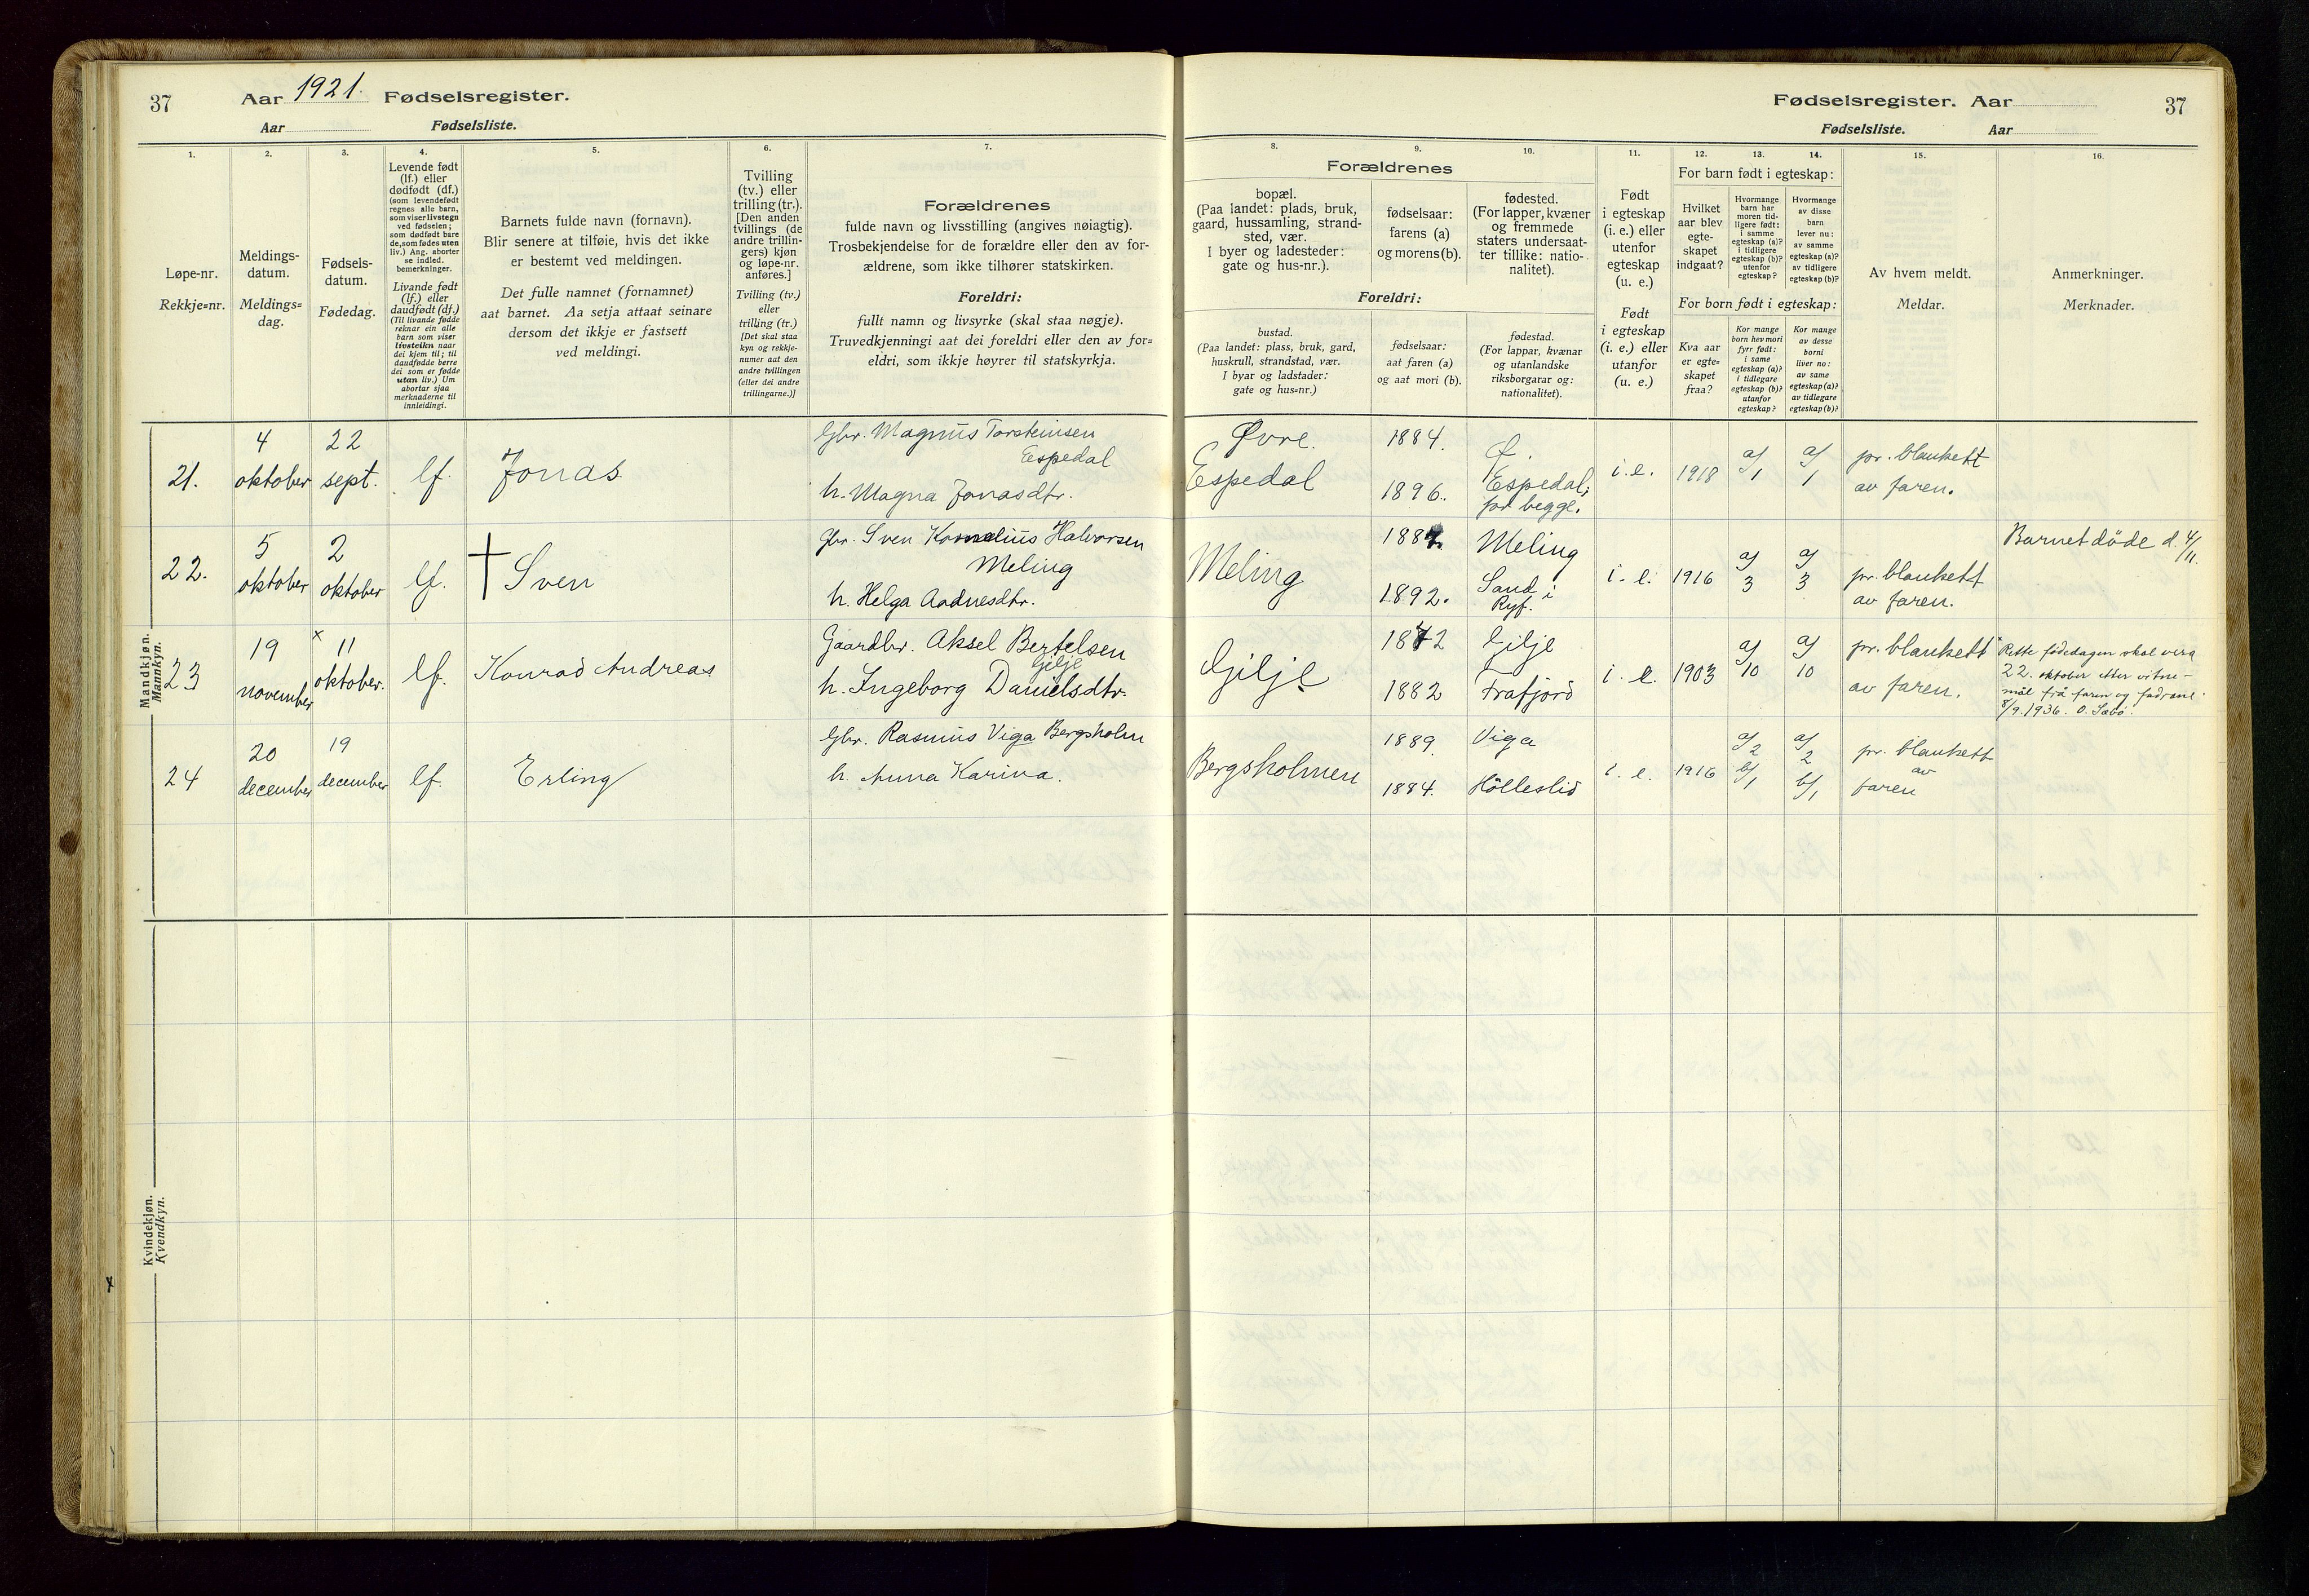 37
Aar 1921. Fødselsregister.
Aar Fødselsliste.
Fødselsregister. Aar
37
Fødselsliste. Aar
1.
Løpe-nr.
Rekkje=nr.
2.
Meldings-
datum.
Meldings=
dag.
3.
Fødsels-
datum.
Fødedag.
4.
Levende født
(lf.) eller
dødfødt (df.)
(som levendefødt
regnes alle barn,
som viser livstegn
ved fødselen;
som dødfødt bare
de, som fødes uten
liv.) Ang. aborter
se indled.
bemerkninger.
Livande født
(lf.) eller
daudfødt (df.)
(Til livande fødde
reknar ein alle
barn som viser
livsteikn naar
dei kjem til; til
daudfødde berre
dei som er fødde
utan liv.) Um
abortar sjaa
merknaderne til
innleidingi.
5.
Barnets fulde navn (fornavn).
Blir senere at tilføie, hvis det ikke
er bestemt ved meldingen.
Det fulle namnet (fornamnet)
aat barnet. Aa setja attaat seinare
dersom det ikkje er fastsett
ved meldingi.
6.
Tvilling
(tv.) eller
trilling (tr.).
[Den anden
tvillings (de
andre trillin-
gers) kjøn
og løpe-nr.
anføres.]
Tvilling (tv.)
eller
trilling (tr.)
[Det skal staa
kyn og rekkje-
numer aat den
andre tvillingen
(eller dei andre
trillingarne.)]
7.
Forældrenes
fulde navn og livsstilling (angives nøiagtig).
Trosbekjendelse for de forældre eller den av for-
ældrene, som ikke tilhører statskirken.
Foreldri:
fullt namn og livsyrke (skal staa nøgje).
Truvedkjenningi aat dei foreldri eller den av for=
eldri, som ikkje høyrer til statskyrkja.
8.
Forældrenes
bopæl.
(Paa landet: plads, bruk,
gaard, hussamling, strand-
sted, vær.
I byer og ladesteder:
gate og hus-nr.).
Foreldri:
bustad.
(Paa landet: plass, bruk, gard,
huskrull, strandstad, vær.
I byar og ladstader:
gate og hus=nr.)
9.
fødselsaar:
farens (a)
og morens (b).
fødselsaar:
aat faren (a)
og aat mori (b).
10.
fødested.
(For lapper, kvæner
og fremmede
staters undersaat-
ter tillike: natio-
nalitet).
fødestad.
(For lappar, kvænar
og utanlandske
riksborgarar og:
nationalitet).
11.
Født
i egteskap
(i. e.) eller
utenfor
egteskap
(u. e.)
Født
i egteskap
(i. e.) eller
utanfor
(u. e.)
12.
13.
14.
For barn født i egteskap:
Hvilket
aar blev
egte-
skapet
indgaat?
Hvormange
barn har
moren tid-
ligere født:
i samme
egteskap (a)?
i tidligere
egteskap (b)?
utenfor
egteskap?
Hvormange
av disse
barn
lever nu:
av samme
egteskap (a)?
av tidligere
egteskap (b)?
For born født i egteskap:
Kva aar
er egte=
skapet
fraa?
Kor mange
born hev mori
fyrr født:
i same
egteskap (a)?
i tidlegare
egteskap (b)?
utanfor
egteskap?
Kor mange
av desse
borni
liver no:
av same
egteskap (a)?
av tidlegare
egteskap (b)?
15.
Av hvem meldt.
Meldar.
16.
Anmerkninger.
Merknader.
Mandkjøn.
Mannkyn.
21.
4
oktober
22
sept.
lf.
Jonas
Gbr. Magnus Torsteinsen
Espedal
h. Magna Jonasdtr.
Øvre
Espedal
1884.
1896.
Ø.
Espedal;
for begge.
i. e.
1918
a/1
a/1
pr. blankett
av faren.
22.
5
oktober
2
oktober
lf.
† Sven
Gbr. Sven Kornelius Halvorsen
Meling
h. Helga Aadnesdtr.
Meling
1892.
Meling
Sand i
Ryf.
i. e.
1916
a/3
a/3
pr. blankett
av faren.
Barnet døde d. 4/11.
23
19
november
x 11
oktober.
lf.
Konrad Andreas
Gaardbr. Aksel Bertelsen
Gilje
h. Ingeborg Danielsdtr.
Gilje
1872
1882
Gilje
Frafjord
i. e.
1903
a/10
a/10
pr. blankett
av faren.
x Rette fødedagen skal vera
22. oktober etter vitne-
mål frå faren og fadrane
8/9.1936. O. Sæbø.
24
20
december
19
december
lf.
Erling
Gbr. Rasmus Viga Bergsholm
h. Anna Karina.
Bergsholmen
1889.
1884.
Viga
Hølleslid
i. e.
1916
a/2
b/1
a/2
b/1
pr. blankett
av
faren
Kvindekjøn.
Kvendkyn.